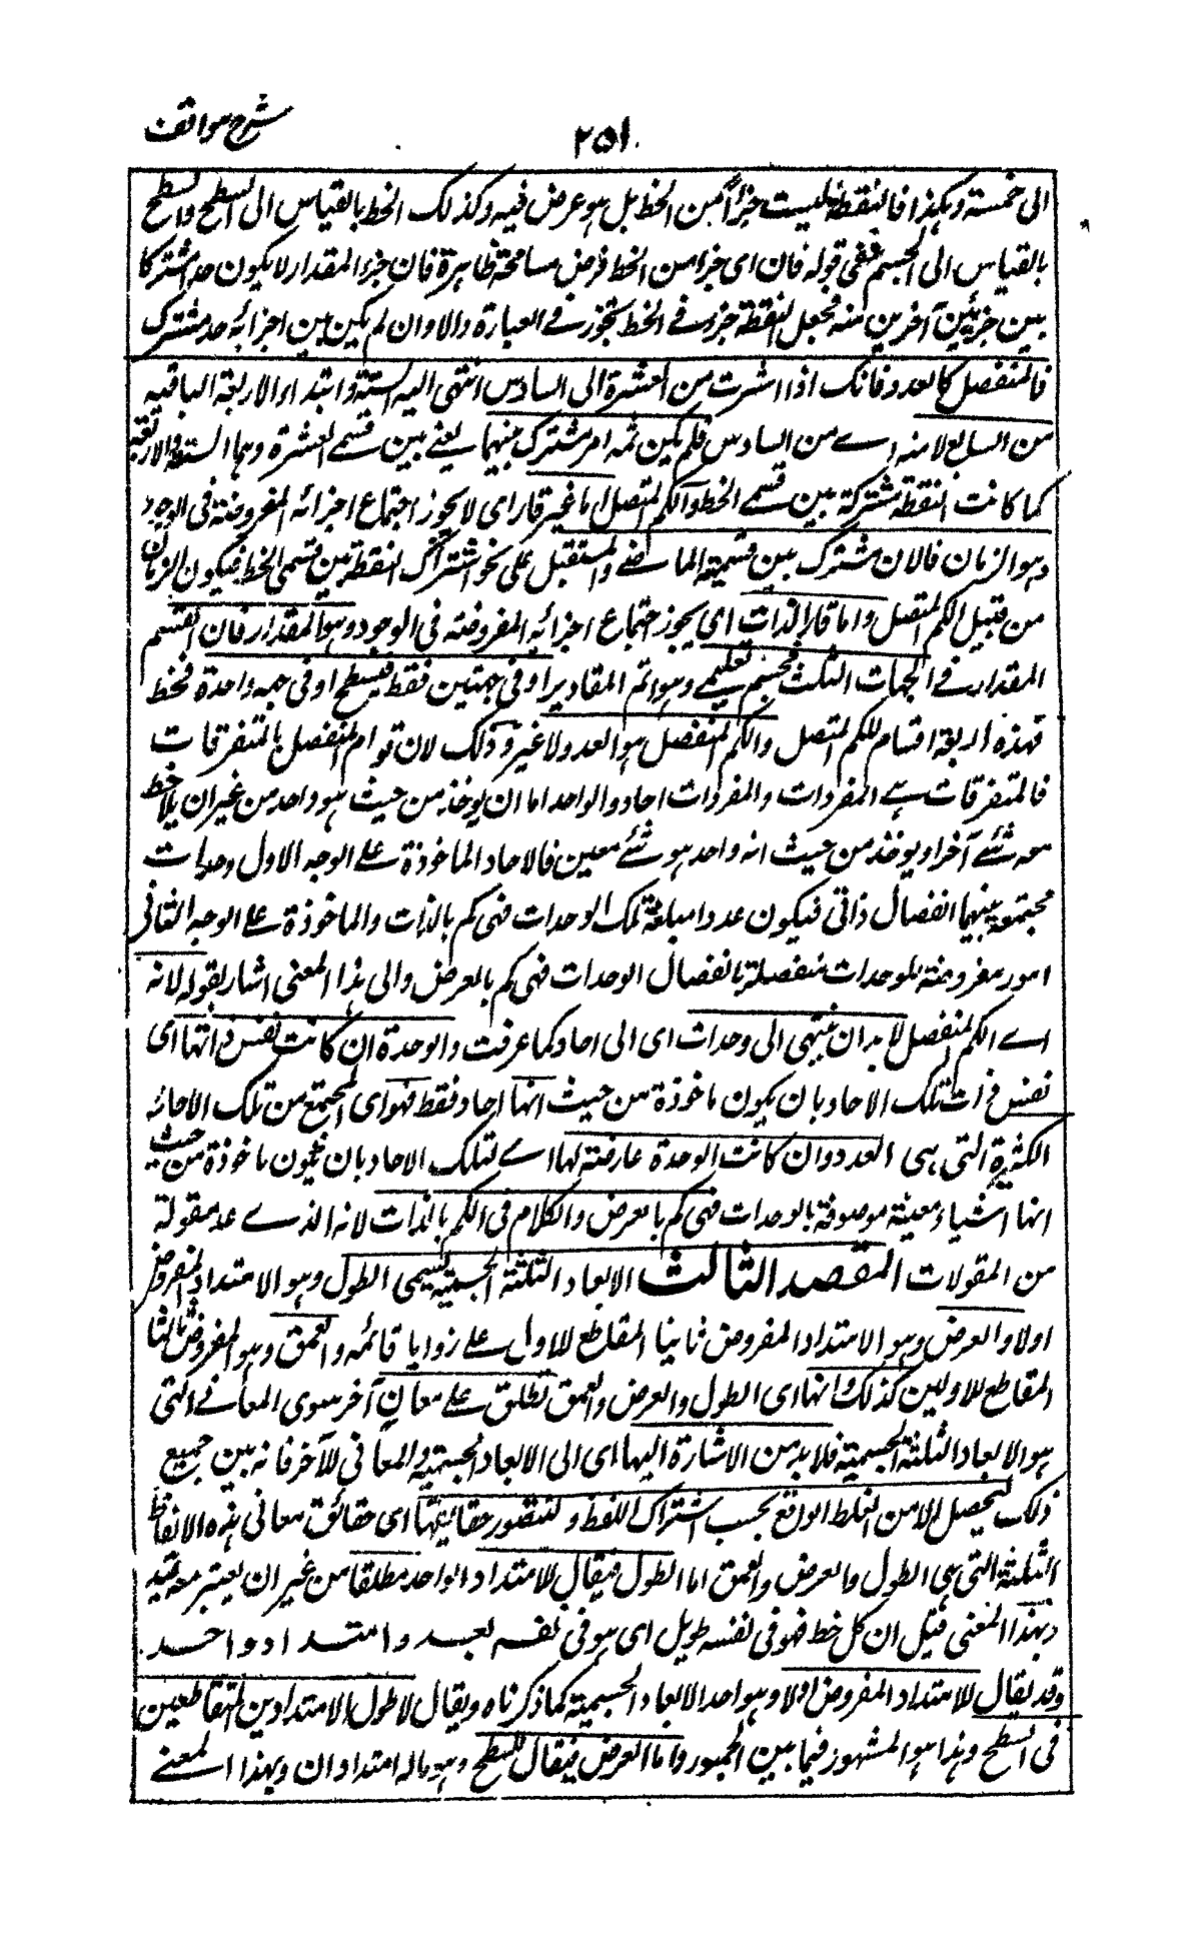 شرح مواقف
٢٥١
الى خمسة وهكذا فالنقطة ليست جزأ من الخط بل هو عرض فيه وكذلك الخط بالقياس الى السطح والسطح
بالقياس الى الجسم ففى قوله فان اى جزء من الخط فرض مسامحة ظاهرة فان جزء المقدار لا يكون حدا مشتركا
بين جزئين آخرين منه فجعل النقطة جزء فے الخط تجوز فے العبارة والا وان لم يكن بين اجزائه حد مشترك
فالمنفصل كالعدد فانك اذا اشرت من العشرة الى السادس انتهى اليه الستة وابتداء الاربعة الباقية
من السابع لا منه اے من السادس فلم يكن ثمه امر مشترك بينهما يعنے بين قسمے العشرة وهما الستة والاربعة
كما كانت النقطة مشتركة بين قسمے الخط والكم المتصل اما غير قار اى لا يجوز اجتماع اجزائه المفروضة فى الوجود
وهو الزمان فالان مشترك بين قسميه الماضے والمستقبل على نحو اشتراك النقطة بين قسمى الخط فيكون الزمان
من قبيل الكم المتصل واما قار الذات اى يجوز اجتماع اجزائه المفروضة فى الوجود وهو المقدار فان انقسم
المقدار فے الجهات الثلث فجسم تعليمے وهو اتم المقادير او فى جهتين فقط فسطح او فى جهة واحدة فخط
فهذه اربعة اقسام للكم المتصل والكم المنفصل هو العدد ولا غير وذلك لان قوام المنفصل بالمتفرقات
فالمتفرقات هے المفردات والمفردات احاد والواحد اما ان يوخذ من حيث هو واحد من غير ان يلاحظ
معه شئے آخر او يوخذ من حيث انه واحد هو شئے معين فالاحاد الماخوذة علے الوجه الاول وحدات
مجتمعة بينهما انفصال ذاتى فيكون عددا مبلغه تلك الوحدات فهى كم بالذات والماخوذة علے الوجه الثانى
امور معروضة للوحدات منفصلة بانفصال الوحدات فهى كم بالعرض والى هذا المعنى اشار بقوله لانه
اے الكم المنفصل لا بد ان ينتهى الى وحدات اى الى احاد كما عرفت والوحدة ان كانت نفس ذاتها اى
نفس ذات تلك الاحاد بان يكون ماخوذة من حيث انها احاد فقط فهو اى المجتمع من تلك الاحاد
الكثرة التى هى العدد وان كانت الوحدة عارضة لها اے لتلك الاحاد بان يكون ماخوذة من حيث
انها اشياء معينة موصوفة بالوحدات فهى كم بالعرض والكلام فى الكم بالذات لانه الذے عد مقولة
من المقولات المقصد الثالث الابعاد الثلثة الجسمية يسمى الطول وهو الامتداد المفروض
اولا والعرض وهو الامتداد المفروض ثانيا المقاطع للاول علے زوايا قائمه والعمق وهو المفروض ثالثا
المقاطع للاولين كذلك وانها اى الطول والعرض والعمق تطلق علے معان آخر سوى المعانے التى
هو الابعاد الثلثة الجسمية فلا بد من الاشارة اليها اى الى الابعاد الجسمية والمعانى الآخر فانه بين جميع
ذلك ليحصل الامن الغلط الواقع بحسب اشتراك اللفظ ولتتصور حقايقها اى حقائق معانى هذه الالفاظ
الثلثة التى هى الطول والعرض والعمق اما الطول فيقال للامتداد الواحد مطلقا من غير ان يعتبر معه قيد
وبهذا المعنى قيل ان كل خط فهو فى نفسه طويل اى هو فى نفسه بعد وامتداد واحد
وقد يقال للامتداد المفروض اولا وهو احد الابعاد الجسمية كما ذكرناه ويقال لاطول الامتدادين المتقاطعين
فى السطح وهذا هو المشهور فيما بين الجمهور واما العرض فيقال للسطح وهو ماله امتدادان وبهذا المعنے